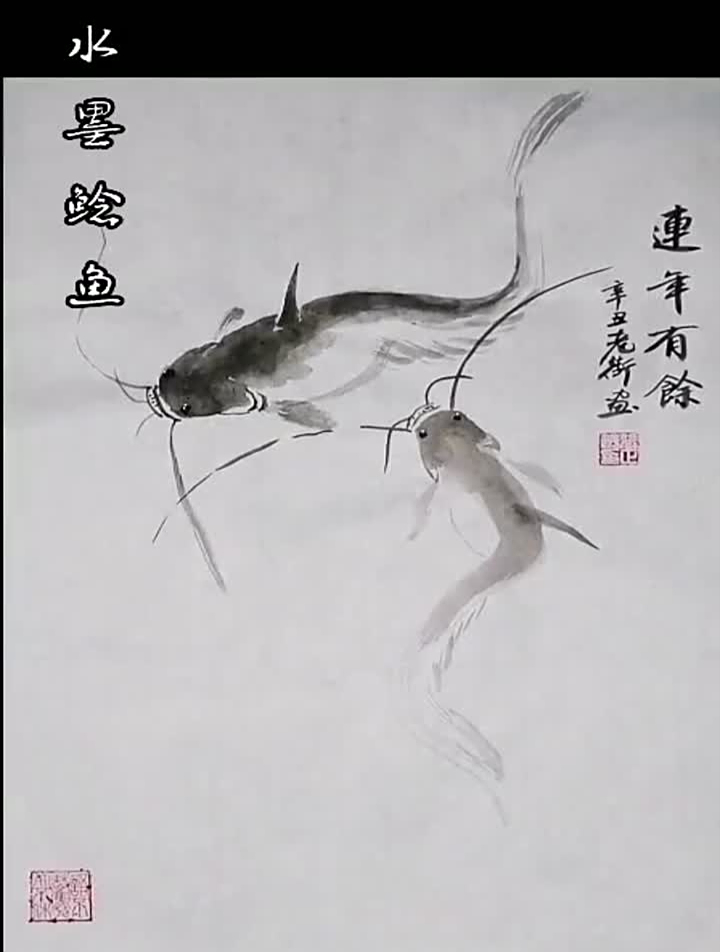 水墨鲶鱼
連年有餘
辛丑老街画